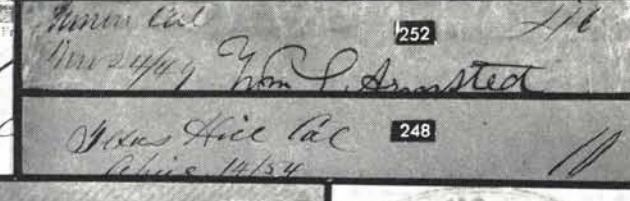 Cal 252 40
Nov 24/49 Wm P. Armsted
Texas Hill Cal 248 10
April 14/54